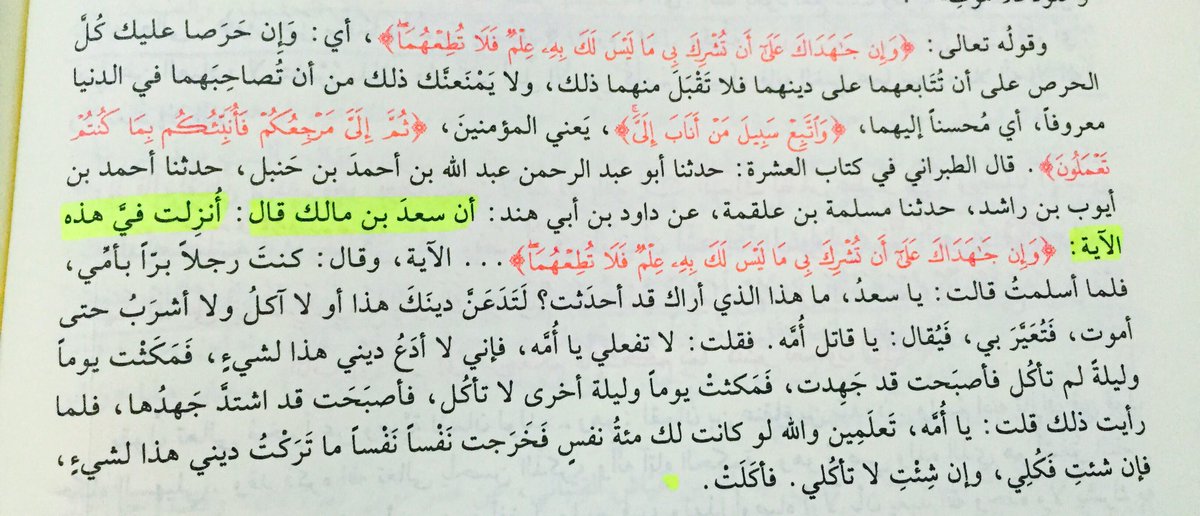 وقولُه تعالى: ﴿وَإِن جَـٰهَدَاكَ عَلَىٰٓ أَن تُشْرِكَ بِى مَا لَيْسَ لَكَ بِهِۦ عِلْمٌ فَلَا تُطِعْهُمَاۖ﴾، أي: وَإِن حَرَصا عليك كُلَّ
الحرص على أن تُتَابعهما على دينهما فلا تَقْبَلَ منهما ذلك، ولا يَمْنَعنَّك ذلك من أن تُصاحِبَهما في الدنيا
معروفاً، أي مُحسناً إليهما، ﴿وَٱتَّبِعْ سَبِيلَ مَنْ أَنَابَ إِلَىَّۚ﴾، يَعني المؤمنينَ، ﴿ثُمَّ إِلَىَّ مَرْجِعُكُمْ فَأُنَبِّئُكُم بِمَا كُنتُمْ
تَعْمَلُونَ﴾. قال الطبراني في كتاب العشرة: حدثنا أبو عبد الرحمن عبد الله بن أحمدَ بن حَنبل، حدثنا أحمد بن
أيوب بن راشد، حدثنا مسلمة بن علقمة، عن داود بن أبي هند: أن سعدَ بن مالك قال: أُنزِلت فيَّ هذه
الآية: ﴿وَإِن جَـٰهَدَاكَ عَلَىٰٓ أَن تُشْرِكَ بِى مَا لَيْسَ لَكَ بِهِۦ عِلْمٌ فَلَا تُطِعْهُمَاۖ﴾... الآية، وقال: كنتَ رجلاً برّاً بأمِّي،
فلما أسلمتُ قالت: يا سعدُ، ما هذا الذي أراك قد أحدَثت؟ لَتَدَعَنَّ دينَكَ هذا أو لا آكلُ ولا أشرَبُ حتى
أموت، فَتُعَيَّرَ بي، فَيُقال: يا قاتل أُمَّه. فقلت: لا تفعلي يا أُمَّه، فإني لا أدَعُ ديني هذا لشيءٍ، فَمَكَثْت يوماً
وليلةً لم تأكُل فأصبَحت قد جَهِدت، فَمَكثتْ يوماً وليلة أخرى لا تأكُل، فأصبَحَت قد اشتدَّ جَهدُها، فلما
رأيت ذلك قلت: يا أُمَّه، تَعلَمِين والله لو كانت لك مئةُ نفسٍ فَخَرَجت نَفْساً نَفْساً ما تَرَكْتُ ديني هذا لشيءٍ،
فإن شئتِ فَكُلِي، وإن شِئْتِ لا تأكُلي. فأكَلَتْ.